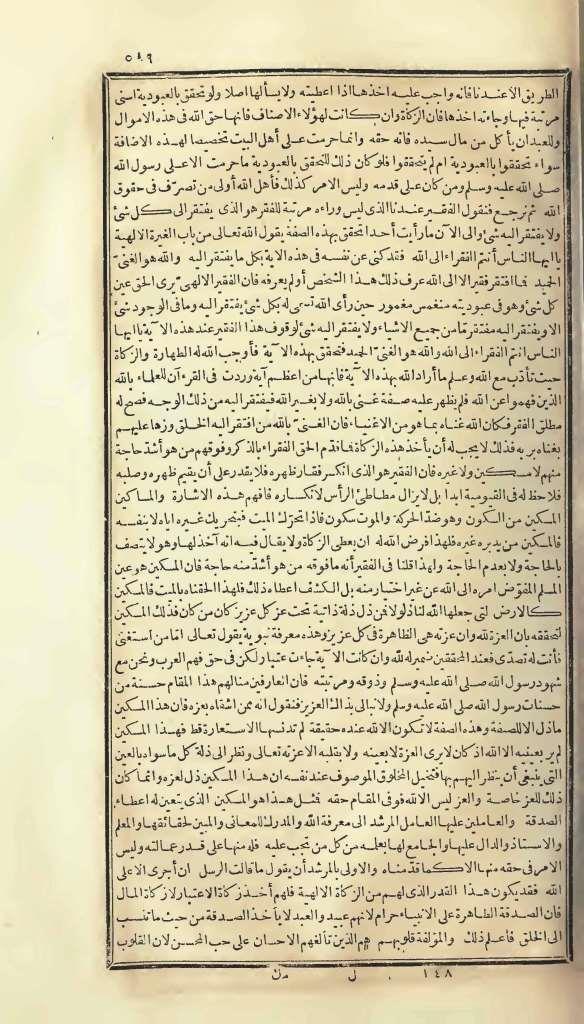 ٥٨٩
الطريق الاعندنا فانه واجب عليه اخذها اذا اعطيته ولا يسألها اصلا ولو تحقق بالعبودية اسنى
مرتبة فيها وجاءته اخذها فان الزكاة وان كانت لهؤلاء الاصناف فانها حق الله في هذه الاموال
وللعبد ان يأكل من مال سيده فانه حقه وانما حرمت على أهل البيت تخصيصا لهذه الاضافة
سواء تحققوا بالعبودية ام لم يتحققوا فلو كان ذلك للتحقق بالعبودية ما حرمت الاعلى رسول الله
صلى الله عليه وسلم ومن كان على قدمه وليس الامر كذلك فأهل الله أولى من تصرف في حقوق
الله ثم نرجع فنقول الفقير عندنا الذي ليس وراءه مرتبة للفقر هو الذي يفتقر الى كل شئ
ولا يفتقر اليه شئ والى الآن ما رأيت أحدا تحقق بهذه الصفة يقول الله تعالى من باب الغيرة الالهية
يا ايها الناس أنتم الفقراء الى الله فقد كنى عن نفسه في هذه الاية بكل ما يفتقر اليه والله هو الغنى
الحميد فما افتقر فقير الا الى الله عرف ذلك هذا الشخص أو لم يعرفه فان الفقير الالهى يرى الحق عين
كل شئ وهو في عبوديته منغمس مغمور حين رأى الله تسمى له بكل شئ يفتقر اليه وما في الوجود شئ
الا ويفتقر اليه مفتقر ما من جميع الاشياء ولا يفتقر اليه شئ لوقوف هذا الفقير عند هذه الاية يا ايها
الناس انتم الفقراء الى الله والله هو الغنى الحميد فتحقق بهذه الآية فأوجب الله له الطهارة والزكاة
حيث تأدب مع الله وعلم ما أراد الله بهذه الآية فانها من اعظم آية وردت في القرءآن للعلماء بالله
الذين فهموا عن الله فلم يظهر عليه صفة غنى بالله ولا بغير الله فيفتقر اليه من ذلك الوجه فصح له
مطلق الفقر فكان الله غناه بما هو من الاغنياء فان الغنى بالله من افتقر اليه الخلق وزها عليهم
بغناه بربه فذلك لا يجب له أن يأخذ هذه الزكاة فما قدم الحق الفقراء بالذكر وفوقهم من هو أشد حاجة
منهم لا مسكين ولا غيره فان الفقير هو الذي انكسر فقار ظهره فلا يقدر على أن يقيم ظهره وصلبه
فلا حظ له في القيومية ابدا بل لا يزال مطأطئ الرأس لانكساره فافهم هذه الاشارة والمساكين
المسكين من السكون وهو ضد الحركة والموت سكون فاذا تحرك الميت فبتحريك غيره اياه لا بنفسه
فالمسكين من يدبره غيره فلهذا افرض الله له ان يعطى الزكاة ولا يقال فيه انه آخذ لها وهو لا يتصف
بالحاجة ولا بعدم الحاجة ولهذا قلنا في الفقير أنه ما فوقه من هو أشد منه حاجة فان المسكين هو عين
المسلم المفوض امره الى الله عن غير اختيار منه بل الكشف اعطاه ذلك فلهذا الحقناه بالميت فالمسكين
كالارض التي جعلها الله لنا ذلولا فمن ذل ذلة ذاتية تحت عز كل عزيز كان من كان فذلك المسكين
لتحققه بان العزة لله وان عزته هى الظاهرة في كل عزيز وهذه معرفة نبوية يقول تعالى امّا من استغنى
فأنت له تصدّى فعند المحققين ضمير له لله وان كانت الآية جاءت عتبا لكن في حق فهم العرب ونحن مع
شهود رسول الله صلى الله عليه وسلم وذوقه ومرتبته فان العارفين منا لهم هذا المقام حسنة من
حسنات رسول الله صلى الله عليه وسلم ولا تبالى بذلك العزيز فنقول انه ممن اشقاه بعزه فان هذا المسكين
ما ذل الا للصفة وهذه الصفة لا تكون الا لله عنده حقيقة لم تدنسها الاستعارة قط فهذا المسكين
لم ير بعينه الا الله اذ كان لا يرى العزة الا بعينه ولا بقلبه الا عزته تعالى ونظر الى ذلة كل ما سواه بالعين
التي ينبغى أن ينظر اليهم بها فتخيل المخلوق الموصوف عند نفسه ان هذا المسكين ذل لعزه وانما كان
ذلك للعز خاصة والعز ليس الا لله فوفى المقام حقه فمثل هذا هو المسكين الذي يتعين له اعطاء
الصدقة والعاملين عليها العامل المرشد الى معرفة الله والمدرك للمعانى والمبين لحقائقها والمعلم
والاستاذ والدال عليها والجامع لها بعلمه من كل من تجب عليه فله منها على قدر عمالته وليس
الامر في حقه منها الا كما قدمناه والاولى بالمرشد أن يقول ما قالت الرسل ان أجرى الا على
الله فقد يكون هذا القدر الذى لهم من الزكاة الالهية فلهم أخذ زكاة الاعتبار لا زكاة المال
فان الصدقة الظاهرة على الانبياء حرام لانهم عبيد والعبد لا يأخذ الصدقة من حيث ما تنسب
الى الخلق فأعلم ذلك والمؤلفة قلوبهم هم الذين تألفهم الاحسان على حب المحسن لان القلوب
١٤٨ ل من